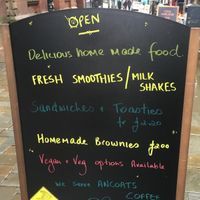 OPEN
Delicious home made food.
FRESH SMOOTHIES / MILK
SHAKES
Sandwiches + Toasties
fr £2.20
Homemade Brownies £2.00
Vegan + Veg options Available
WE SERVE ANCOATS
COFFEE